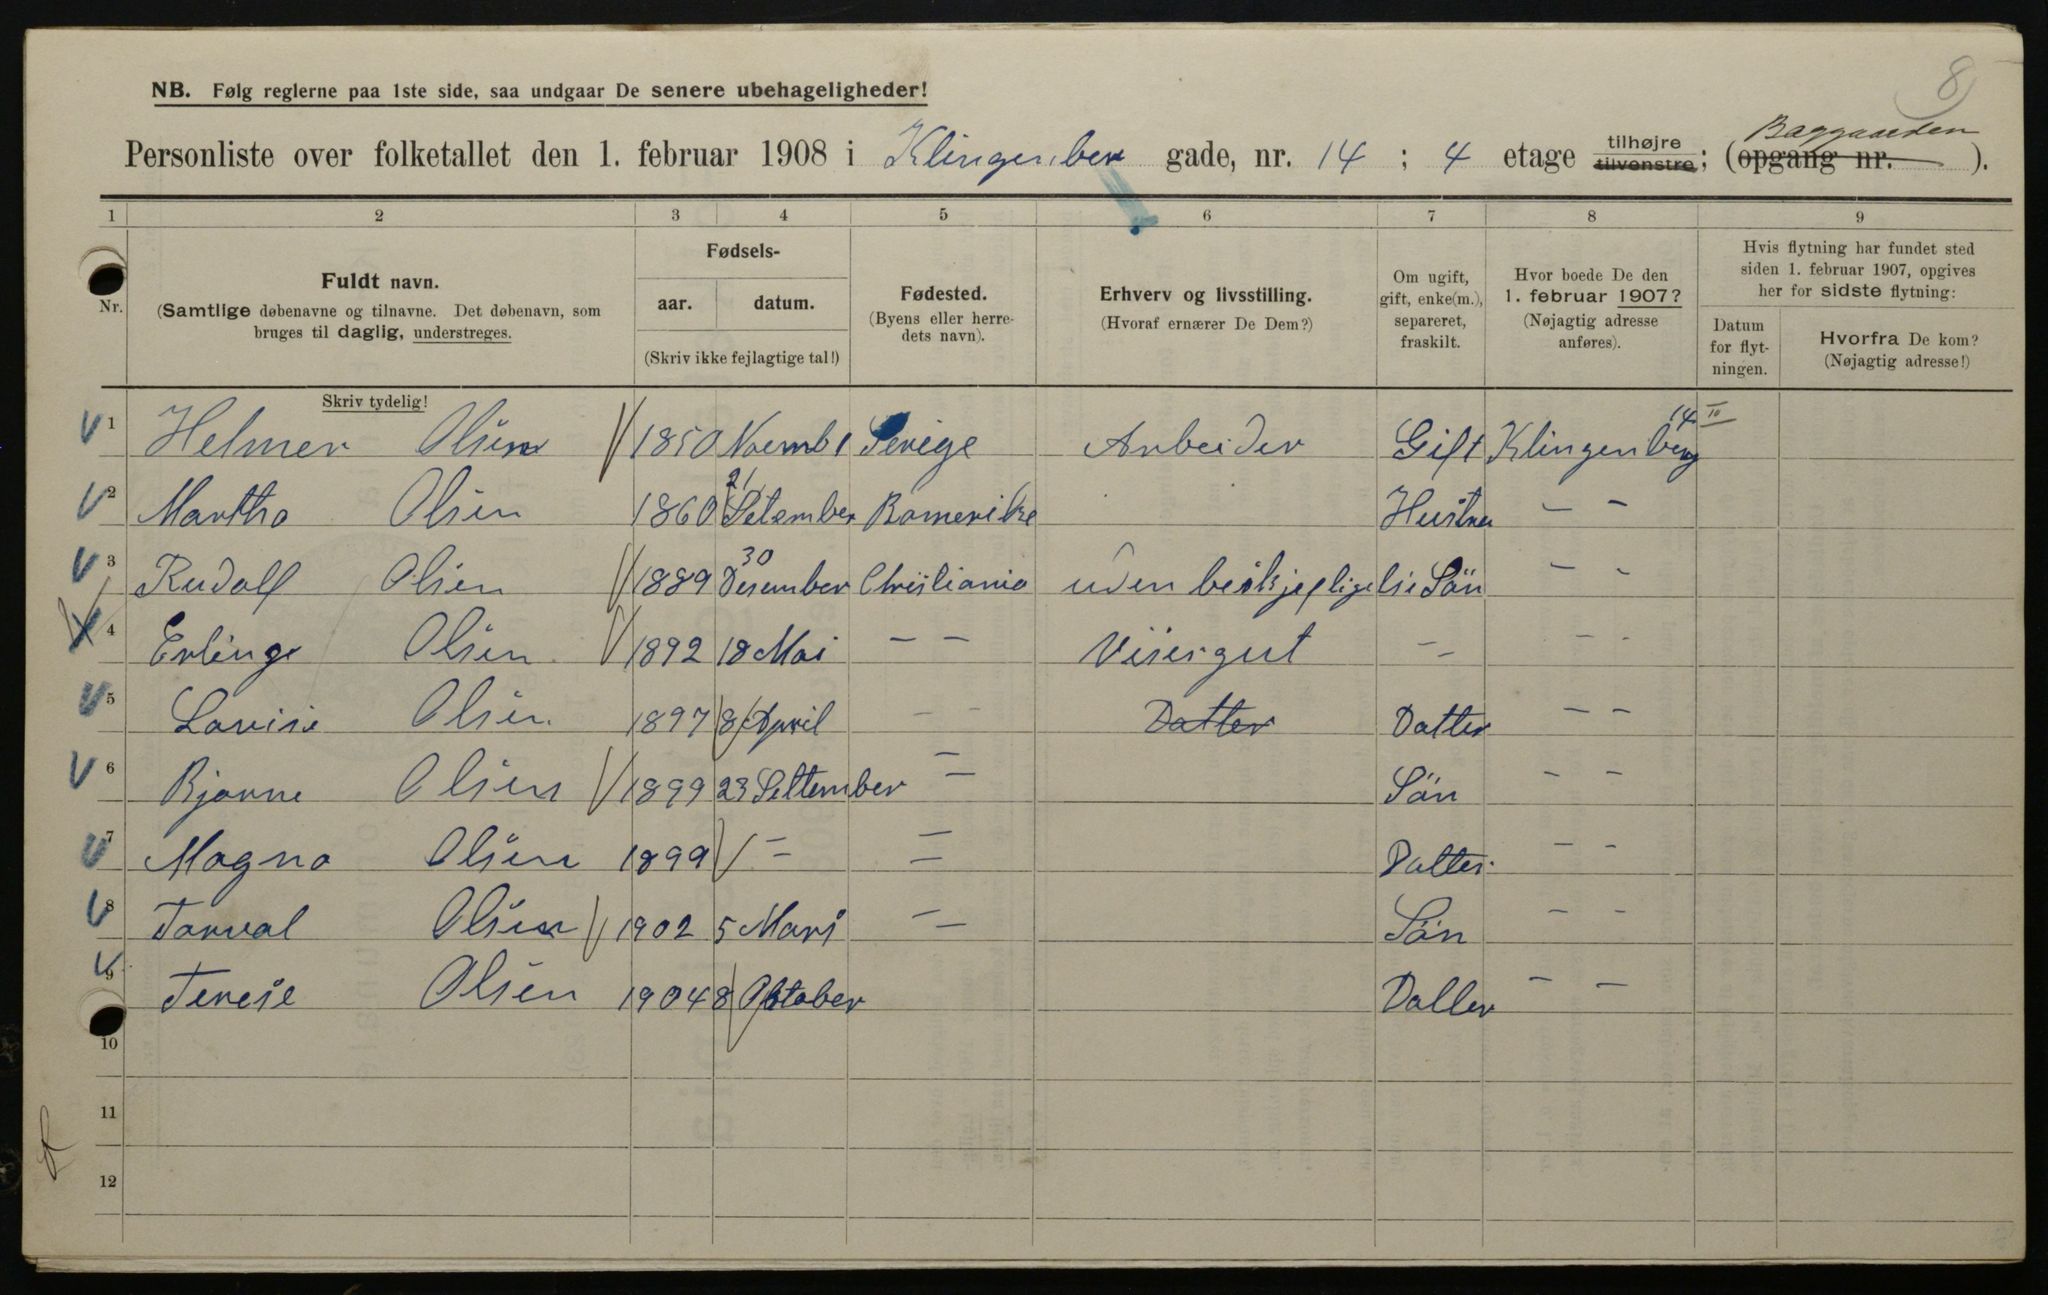 8
NB. Følg reglerne paa 1ste side, saa undgaar De senere ubehageligheder!
Baggaarden
Personliste over folketallet den 1. februar 1908 i Klingenber gade, nr. 14 ; 4 etage tilhøjre tilvenstre; (opgang nr. ).
1 2 3 4 5 6 7 8 9
Nr.
Fuldt navn.
(Samtlige døbenavne og tilnavne. Det døbenavn, som
bruges til daglig, understreges.
Skriv tydelig!
Fødsels-
aar. datum.
(Skriv ikke fejlagtige tal!)
Fødested.
(Byens eller herre-
dets navn).
Erhverv og livsstilling.
(Hvoraf ernærer De Dem?)
Om ugift,
gift, enke(m.),
separeret,
fraskilt.
Hvor boede De den
1. februar 1907?
(Nøjagtig adresse
anføres).
Hvis flytning har fundet sted
siden 1. februar 1907, opgives
her for sidste flytning:
Datum
for flyt-
ningen.
Hvorfra De kom?
(Nøjagtig adresse!)
1 Helmer Olsen 1850 Noembr Serige Arbeider Gift Klingenberg 14 III
2 Martha Olsen 1860 21 Setember Romerike Hustru — —
3 Rudolf Olsen 1889 30 Desember Christiania uden beskjefligelse Sön — —
4 Erlingr Olsen 1892 18 Mai — — Visergut — — — —
5 Lovise Olsen 1897 8 April — — Datter Datter — —
6 Bjarne Olsen 1899 23 Settember — — Sön — —
7 Magna Olsen 1899 — — — — Datter — —
8 Torval Olsen 1902 5 Mars — — Sön — —
9 Terese Olsen 1904 8 Oktober Datter — —
10
11
12